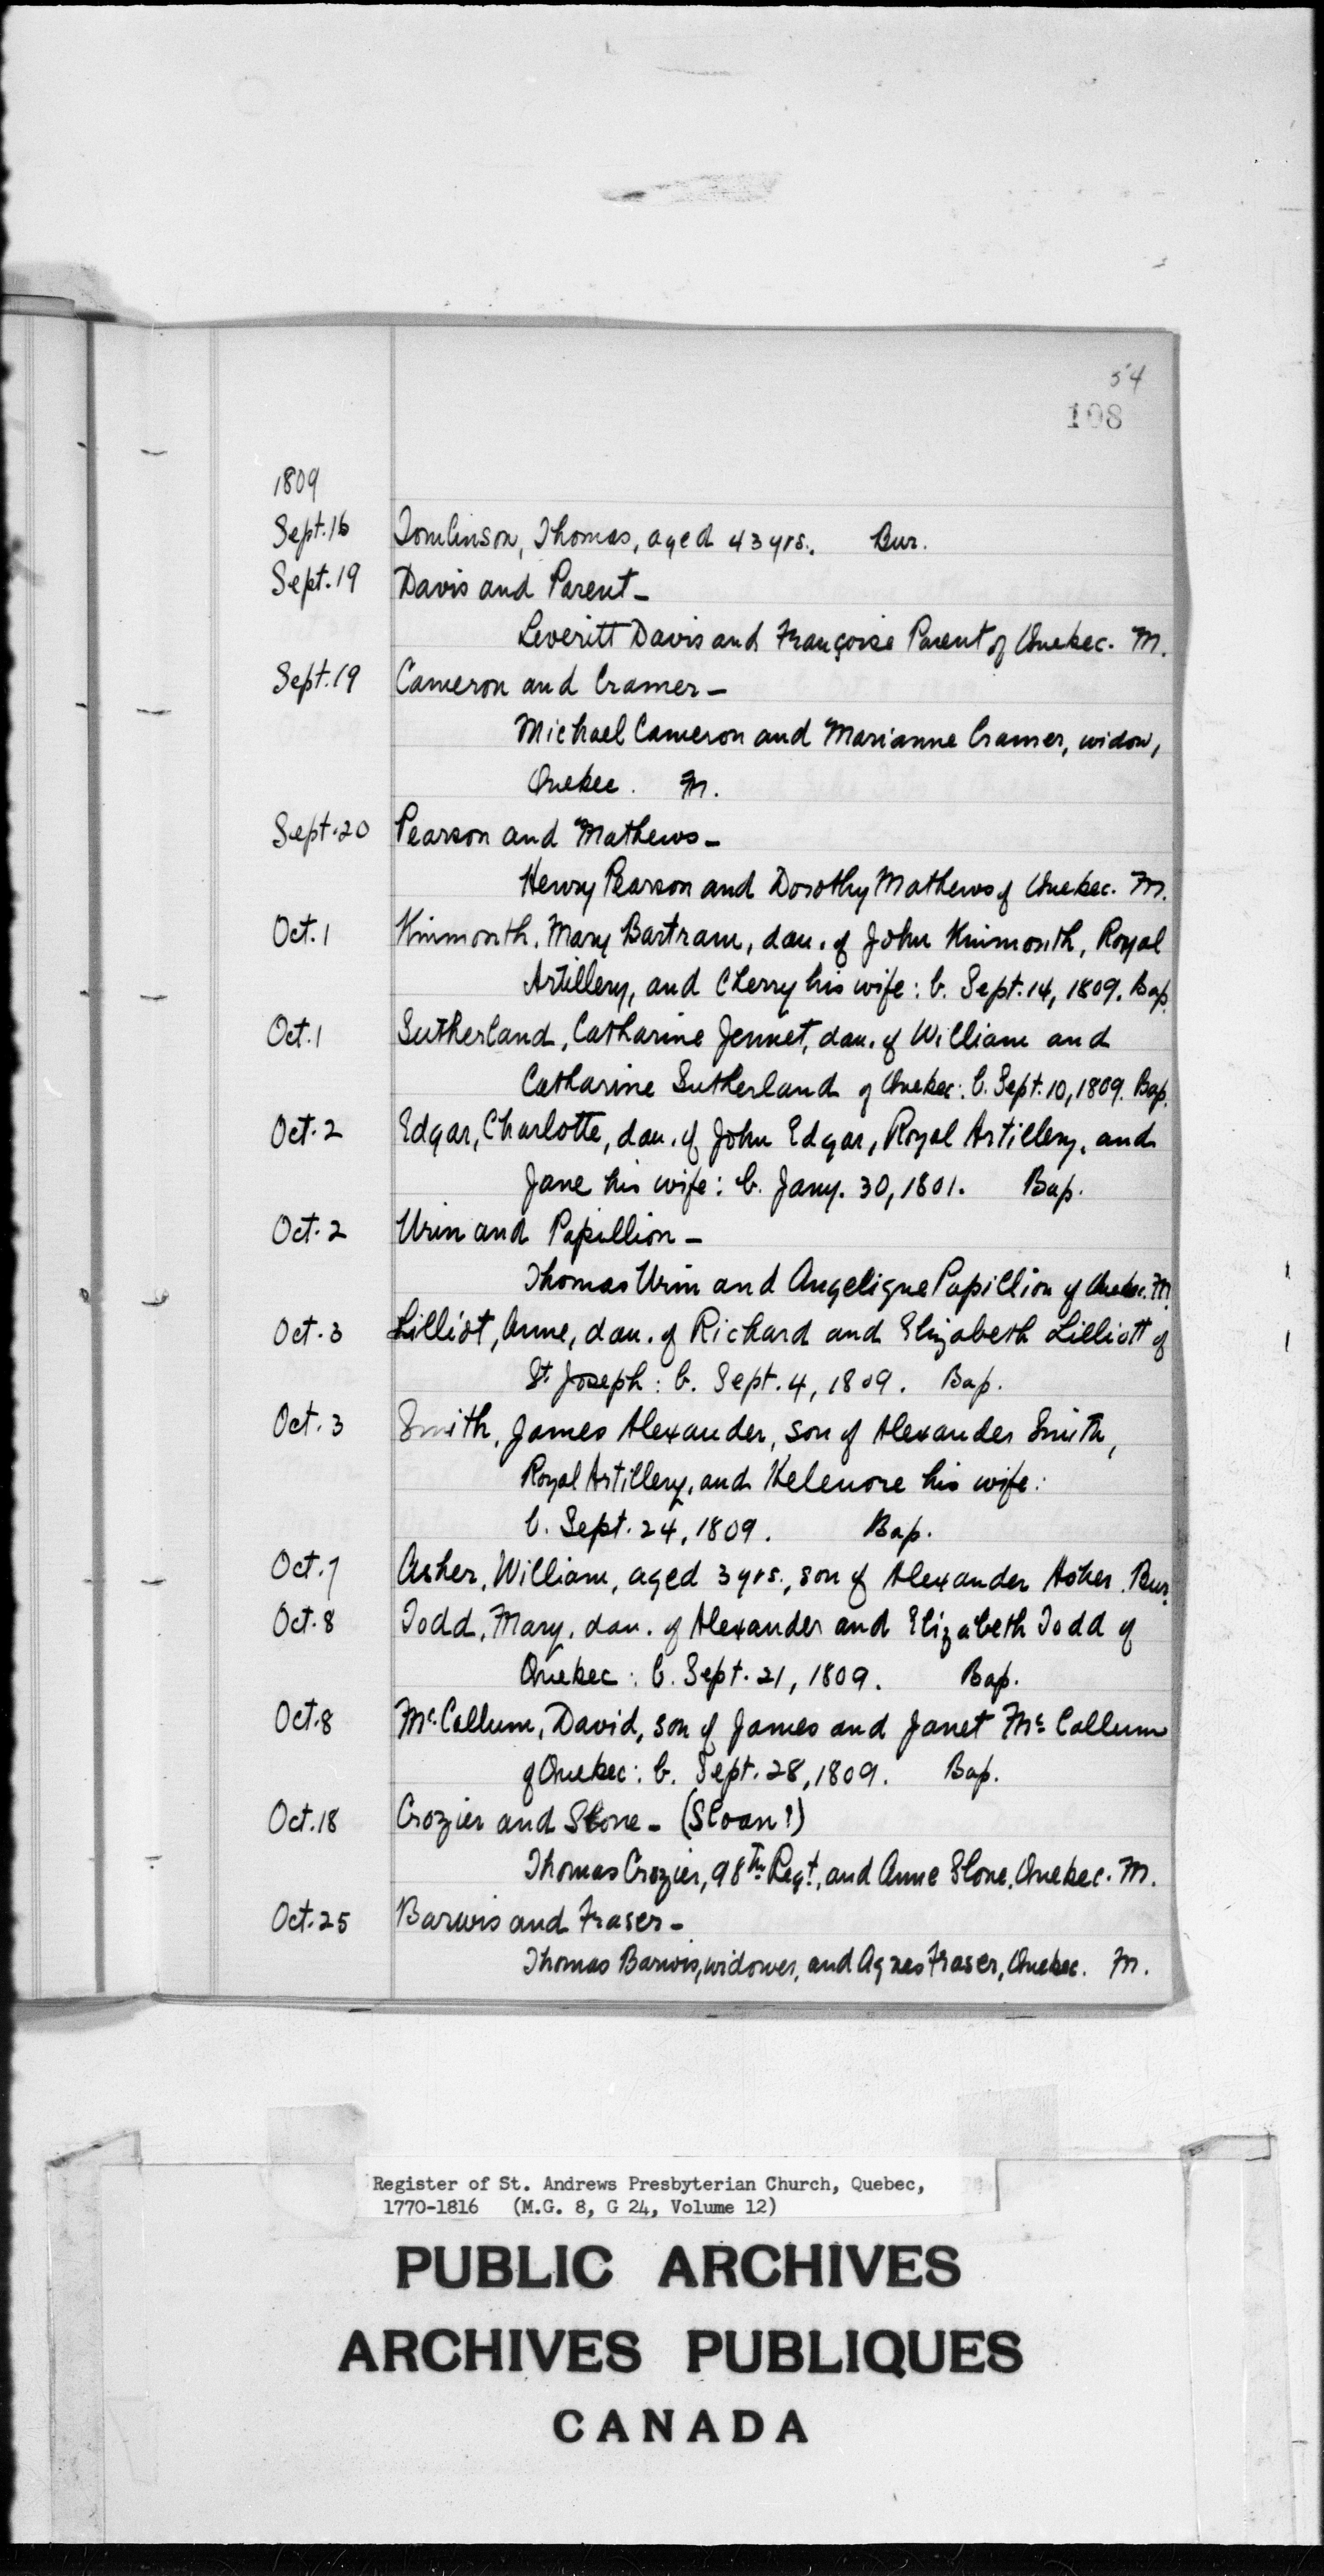 54
108
1809
Sept. 16 Tomlinson, Thomas, aged 43 yrs. Bur.
Sept. 19 Davis and Parent -
Leveritt Davis and Françoise Parent of Quebec. M.
Sept. 19 Cameron and Cramer -
Michael Cameron and Marianne Cramer, widow,
Quebec. M.
Sept. 20 Pearson and Mathews -
Henry Pearson and Dorothy Mathews of Quebec. M.
Oct. 1 Kinmonth, Mary Bartram, dau. of John Kinmonth, Royal
Artillery, and Cherry his wife: b. Sept. 14, 1809. Bap.
Oct. 1 Sutherland, Catharine Jennet, dau. of William and
Catharine Sutherland of Quebec: b. Sept. 10, 1809. Bap.
Oct. 2 Edgar, Charlotte, dau. of John Edgar, Royal Artillery, and
Jane his wife: b. Jany. 30, 1801. Bap.
Oct. 2 Urin and Papillion -
Thomas Urin and Angelique Papillion of Quebec. M.
Oct. 3 Lilliot, Anne, dau. of Richard and Elizabeth Lilliott of
St. Joseph: b. Sept. 4, 1809. Bap.
Oct. 3 Smith, James Alexander, son of Alexander Smith,
Royal Artillery, and Helenore his wife:
b. Sept. 24, 1809. Bap.
Oct. 7 Asher, William, aged 3 yrs., son of Alexander Asher. Bur.
Oct. 8 Todd, Mary, dau. of Alexander and Elizabeth Todd of
Quebec: b. Sept. 21, 1809. Bap.
Oct. 8 Mc.Callum, David, son of James and Janet Mc. Callum
of Quebec: b. Sept. 28, 1809. Bap.
Oct. 18 Crozier and Slone - (Sloan?)
Thomas Crozier, 98th Regt., and Anne Slone, Quebec. M.
Oct. 25 Barwis and Fraser -
Thomas Barwis, widower, and Agnes Fraser, Quebec. M.
Register of St. Andrews Presbyterian Church, Quebec,
1770-1816 (M.G. 8, G 24, Volume 12)
PUBLIC ARCHIVES
ARCHIVES PUBLIQUES
CANADA